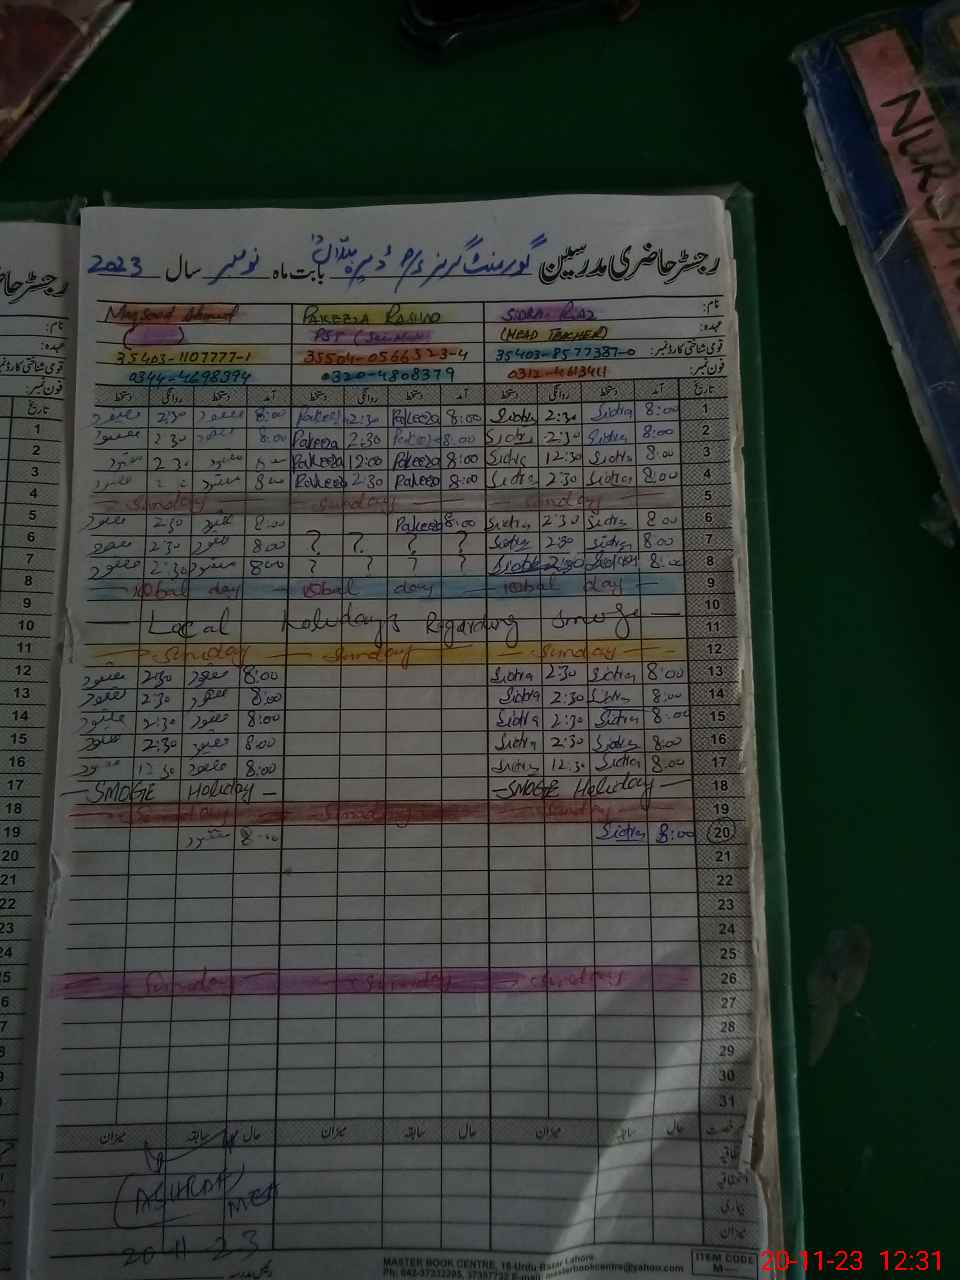 رجسٹر حاضری مدرسین گورنمنٹ گرلز بابت ماہ نومبر سال 2023
نام: SIDRA RIAZ PAKEEZA RASHID Maqsood Ahmed
عہدہ: (HEAD TEACHER) PST
قومی شناختی کارڈ نمبر: 35403-8577387-0 35504-0566523-4 35403-1107777-1
فون نمبر: 0312-4613411 0320-4808379 0344-4698394
تاریخ آمد دستخط روانگی دستخط آمد دستخط روانگی دستخط آمد دستخط روانگی دستخط
1 8:00 Sidra 2:30 Sidra 8:00 Pakeeza 2:30 Pakeeza 8:00 مقصود 2:30 مقصود
2 8:00 Sidra 2:30 Sidra 8:00 Pakeeza 2:30 Pakeeza 8:00 مقصود 2:30 مقصود
3 8:00 Sidra 12:30 Sidra 8:00 Pakeeza 12:00 Pakeeza مقصود 2:30 مقصود
4 8:00 Sidra 2:30 Sidra 8:00 Pakeeza 2:30 Pakeeza 8:00 مقصود مقصود
5 Sunday Sunday Sunday
6 8:00 Sidra 2:30 Sidra 8:00 Pakeeza 8:00 مقصود 2:30 مقصود
7 8:00 Sidra 2:30 Sidra ? ? ? ? 8:00 مقصود 2:30 مقصود
8 8:00 Sidra 2:30 Sidra ? ? ? ? 8:00 مقصود 2:30 مقصود
9 IQbal day IQbal day IQbal day
10
11 Local Holidays Regarding Smoge
12 Sunday Sunday Sunday
13 8:00 Sidra 2:30 Sidra 8:00 مقصود 2:30 مقصود
14 8:00 Sidra 2:30 Sidra 8:00 مقصود 2:30 مقصود
15 8:00 Sidra 2:30 Sidra 8:00 مقصود 2:30 مقصود
16 8:00 Sidra 2:30 Sidra 8:00 مقصود 2:30 مقصود
17 8:00 Sidra 12:30 Sidra 8:00 مقصود 12:30 مقصود
18 -SMOGE Holiday- -SMOGE Holiday-
19 Sunday Sunday Sunday
20 8:00 Sidra 8:00 مقصود
21
22
23
24
25
26 Sunday Sunday Sunday
27
28
29
30
31
حال سابقہ میزان حال سابقہ میزان حال سابقہ میزان
اتفاقیہ
بیماری
میزان
MEA
20-11-23
MASTER BOOK CENTRE, 16-Urdu Bazar Lahore
Ph: 042-37232205, 37357732 E-mail: masterbookcentre@yahoo.com
ITEM CODE
M—
تاریخ
1
2
3
4
5
6
7
8
9
10
11
12
13
14
15
16
17
18
19
20
21
22
23
24
NURSARY
20-11-23 12:31